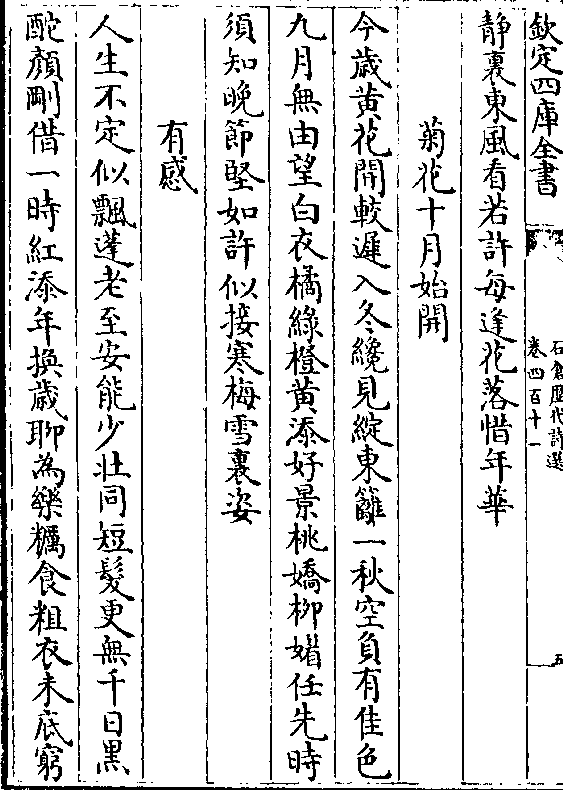 欽定四庫全書
石倉歴代詩選
卷四百十一
五
靜裏東風看若許每逢花落惜年華
菊花十月始開
今歳黄花開較遲入冬纔見綻東籬一秋空負有佳色
九月無由望白衣橘綠橙黄添好景桃嬌栁媚任先時
須知晩節堅如許似接寒梅雪裏姿
有感
人生不定似飄蓬老至安能少壯同短髪更無千日黒
酡顔剛借一時紅添年換歳聊為樂糲食粗衣未底窮